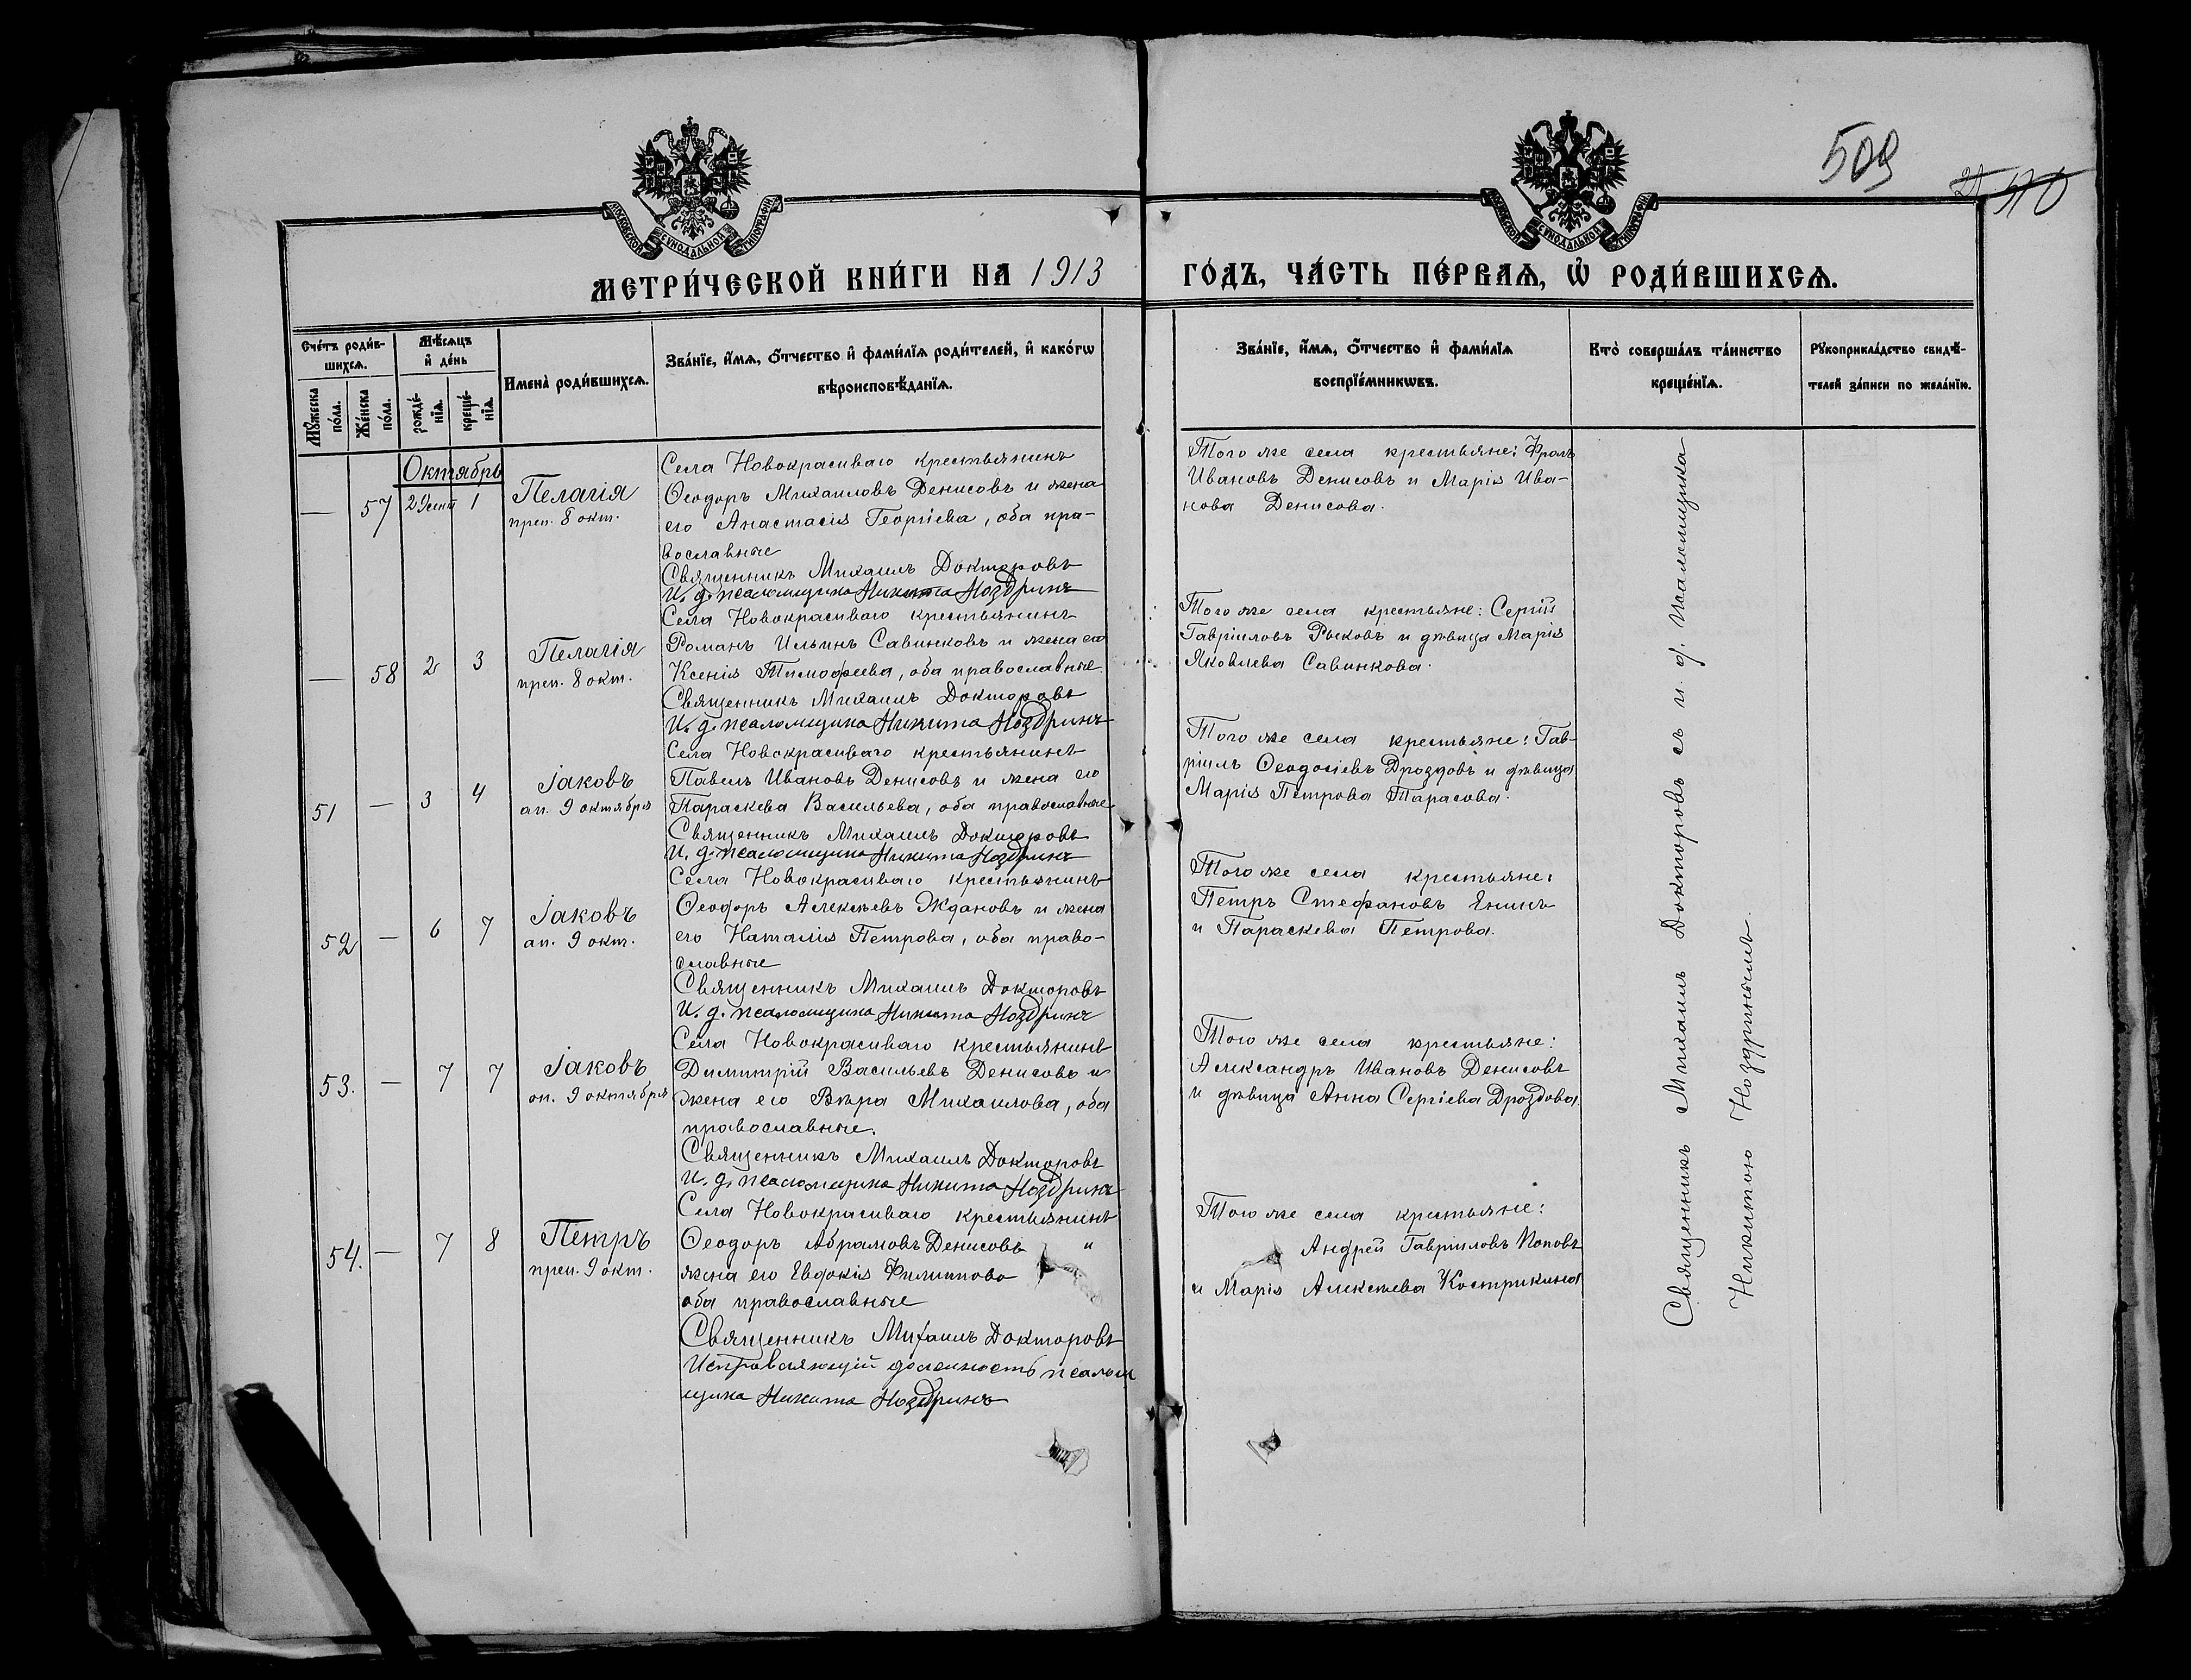 509
510
МОСКОВСКОЙ СѴНОДАЛЬНОЙ ТИПОГРАФІИ
МОСКОВСКОЙ СѴНОДАЛЬНОЙ ТИПОГРАФІИ
МЕТРИ́ЧЕСКОЙ КНИ́ГИ НА 1913
ГО́ДЪ, ЧА́СТЬ ПЕ́РВАѦ, Ѡ҆ РОДИ́ВШИХСѦ.
Сче́тъ роди́в-
шихсѧ.
Мꙋ́жеска по́ла.
Же́нска по́ла.
Мѣ́сѧцъ
и҆ де́нь
рожде́-
нїѧ.
креще́-
нїѧ.
Имена̀ роди́вшихсѧ.
Зва́нїе, и҆́мѧ, ѻ҆́тчество и҆ фами́лїѧ роди́телей, и҆ како́гѡ
вѣроисповѣ́данїѧ.
Зва́нїе, и҆́мѧ, ѻ҆́тчество и҆ фами́лїѧ
воспрїе́мникѡвъ.
Кто̀ соверша́лъ та́инство
креще́нїѧ.
Рꙋкоприкла́дство свидѣ́-
телей за́писи по жела́нїю.
Октябрь
— 57 29 сент 1
Пелагія
преп. 8 окт.
Села Новокрасиваго крестьянинъ
Ѳеодоръ Михаиловъ Денисовъ и жена
его Анастасія Георгіева, оба пра-
вославные
Священникъ Михаилъ Докторовъ
И. д. псаломщика Никита Ноздринъ
Того же села крестьяне: Фролъ
Ивановъ Денисовъ и Марія Ива-
нова Денисова.
— 58 2 3
Пелагія
преп. 8 окт.
Села Новокрасиваго крестьянинъ
Романъ Ильинъ Савинковъ и жена его
Ксенія Тимофеева, оба православные.
Священникъ Михаилъ Докторовъ
И. д. псаломщика Никита Ноздринъ
Того же села крестьяне: Сергій
Гавріиловъ Рыковъ и дѣвица Марія
Яковлева Савинкова.
51 — 3 4
Іаковъ
ап. 9 октября
Села Новокрасиваго крестьянинъ
Павелъ Ивановъ Денисовъ и жена его
Параскева Васильева, оба православные
Священникъ Михаилъ Докторовъ
И. д. псаломщика Никита Ноздринъ
Того же села крестьяне: Гав-
ріилъ Ѳеодосіевъ Дроздовъ и дѣвица
Марія Петрова Тарасова.
52 — 6 7
Іаковъ
ап. 9 окт.
Села Новокрасиваго крестьянинъ
Ѳеодоръ Алексѣевъ Ждановъ и жена
его Наталія Петрова, оба право-
славные
Священникъ Михаилъ Докторовъ
И. д. псаломщика Никита Ноздринъ
Того же села крестьяне:
Петръ Стефановъ Енинъ
и Параскева Петрова.
53. — 7 7
Іаковъ
ап. 9 октября
Села Новокрасиваго крестьянинъ
Димитрій Васильевъ Денисовъ и
жена его Вѣра Михаилова, оба
православные.
Священникъ Михаилъ Докторовъ
И. д. псаломщика Никита Ноздринъ
Того же села крестьяне:
Александръ Ивановъ Денисовъ
и дѣвица Анна Сергіева Дроздова.
54. — 7 8
Петръ
преп. 9 окт.
Села Новокрасиваго крестьянинъ
Ѳеодоръ Абрамовъ Денисовъ и
жена его Евдокія Филиппова
оба православные
Священникъ Михаилъ Докторовъ
Исправляющій должность псалом
щика Никита Ноздринъ
Того же села крестьяне:
Андрей Гавріиловъ Поповъ
и Марія Алексѣева Кострикина
Священникъ Михаилъ Докторовъ съ и. д. Псаломщика
Никитою Ноздринымъ.